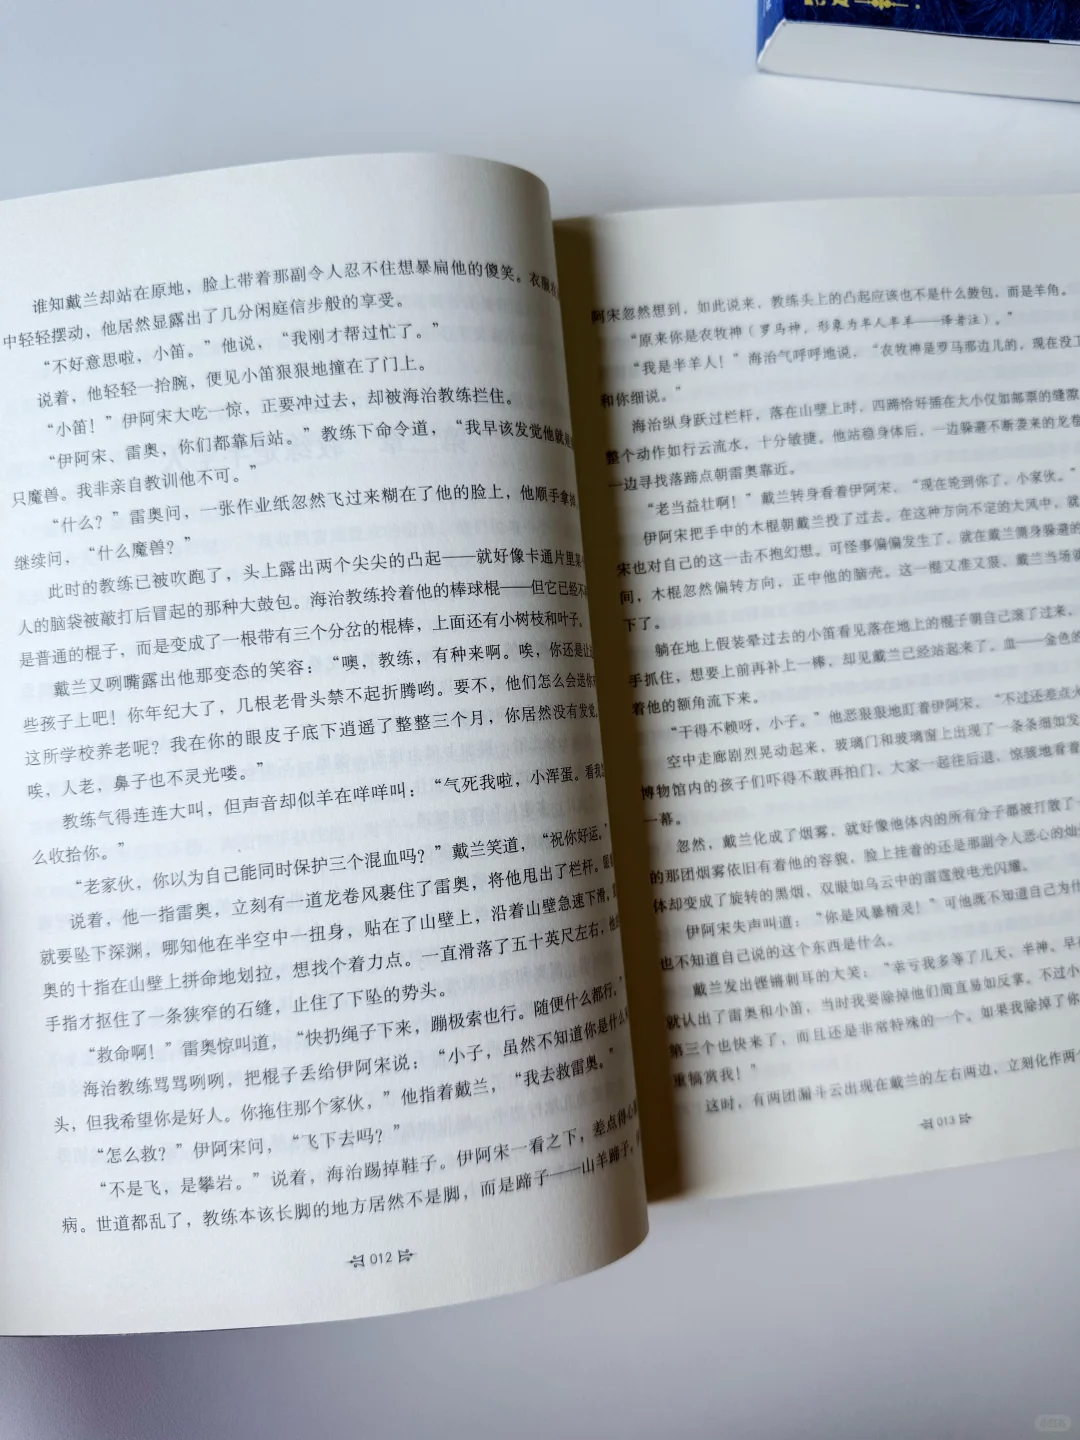 谁知戴兰却站在原地，脸上带着那副令人忍不住想暴扁他的傻笑。衣服
中轻轻摆动，他居然显露出了几分闲庭信步般的享受。
“不好意思啦，小笛。”他说，“我刚才帮过忙了。”
说着，他轻轻一抬腕，便见小笛狠狠地撞在了门上。
“小笛！”伊阿宋大吃一惊，正要冲过去，却被海治教练拦住。
“伊阿宋、雷奥，你们都靠后站。”教练下命令道，“我早该发觉他就是
只魔兽。我非亲自教训他不可。”
“什么？”雷奥问，一张作业纸忽然飞过来糊在了他的脸上，他顺手拿掉
继续问，“什么魔兽？”
此时的教练已被吹跑了，头上露出两个尖尖的凸起——就好像卡通片里某
人的脑袋被敲打后冒起的那种大鼓包。海治教练拎着他的棒球棍——但它已经不
是普通的棍子，而是变成了一根带有三个分岔的棍棒，上面还有小树枝和叶子。
戴兰又咧嘴露出他那变态的笑容：“噢，教练，有种来啊。唉，你还是让这
些孩子上吧！你年纪大了，几根老骨头禁不起折腾哟。要不，他们怎么会送你
这所学校养老呢？我在你的眼皮子底下逍遥了整整三个月，你居然没有发觉。
唉，人老，鼻子也不灵光喽。”
教练气得连连大叫，但声音却似羊在咩咩叫：“气死我啦，小浑蛋。看我怎
么收拾你。”
“老家伙，你以为自己能同时保护三个混血吗？”戴兰笑道，“祝你好运。”
说着，他一指雷奥，立刻有一道龙卷风裹住了雷奥，将他甩出了栏杆。眼
就要坠下深渊，哪知他在半空中一扭身，贴在了山壁上，沿着山壁急速下滑，雷
奥的十指在山壁上拼命地划拉，想找个着力点。一直滑落了五十英尺左右，他
手指才抠住了一条狭窄的石缝，止住了下坠的势头。
“救命啊！”雷奥惊叫道，“快扔绳子下来，蹦极索也行。随便什么都行。”
海治教练骂骂咧咧，把棍子丢给伊阿宋说：“小子，虽然不知道你是什么
头，但我希望你是好人。你拖住那个家伙，”他指着戴兰，“我去救雷奥。”
“怎么救？”伊阿宋问，“飞下去吗？”
“不是飞，是攀岩。”说着，海治踢掉鞋子。伊阿宋一看之下，差点得心
病。世道都乱了，教练本该长脚的地方居然不是脚，而是蹄子——山羊蹄子，
012
阿宋忽然想到，如此说来，教练头上的凸起应该也不是什么鼓包，而是羊角。
“原来你是农牧神（罗马神，形象为半人半羊——译者注）。”
“我是半羊人！”海治气呼呼地说，“农牧神是罗马那边儿的，现在没工
和你细说。”
海治纵身跃过栏杆，落在山壁上时，四蹄恰好插在大小仅如邮票的缝隙
整个动作如行云流水，十分敏捷。他站稳身体后，一边躲避不断袭来的龙卷
一边寻找落蹄点朝雷奥靠近。
“老当益壮啊！”戴兰转身看着伊阿宋，“现在轮到你了，小家伙。”
伊阿宋把手中的木棍朝戴兰投了过去。在这种方向不定的大风中，就
宋也对自己的这一击不抱幻想。可怪事偏偏发生了，就在戴兰侧身躲避的
间，木棍忽然偏转方向，正中他的脑壳。这一棍又准又狠，戴兰当场就
下了。
躺在地上假装晕过去的小笛看见落在地上的棍子朝自己滚了过来，
手抓住，想要上前再补上一棒，却见戴兰已经站起来了。血——金色的
着他的额角流下来。
“干得不赖呀，小子。”他恶狠狠地盯着伊阿宋，“不过还差点
空中走廊剧烈晃动起来，玻璃门和玻璃窗上出现了一条条细如发
博物馆内的孩子们吓得不敢再拍门，大家一起往后退，惊骇地看着
一幕。
忽然，戴兰化成了烟雾，就好像他体内的所有分子都被打散了一
的那团烟雾依旧有着他的容貌，脸上挂着的还是那副令人恶心的灿
体却变成了旋转的黑烟，双眼如乌云中的雷霆般电光闪耀。
伊阿宋失声叫道：“你是风暴精灵！”可他既不知道自己为什
也不知道自己说的这个东西是什么。
戴兰发出铿锵刺耳的大笑：“幸亏我多等了几天，半神。早
就认出了雷奥和小笛，当时我要除掉他们简直易如反掌。不过小
第三个也快来了，而且还是非常特殊的一个。如果我除掉了你
重犒赏我！”
这时，有两团漏斗云出现在戴兰的左右两边，立刻化作两个
013